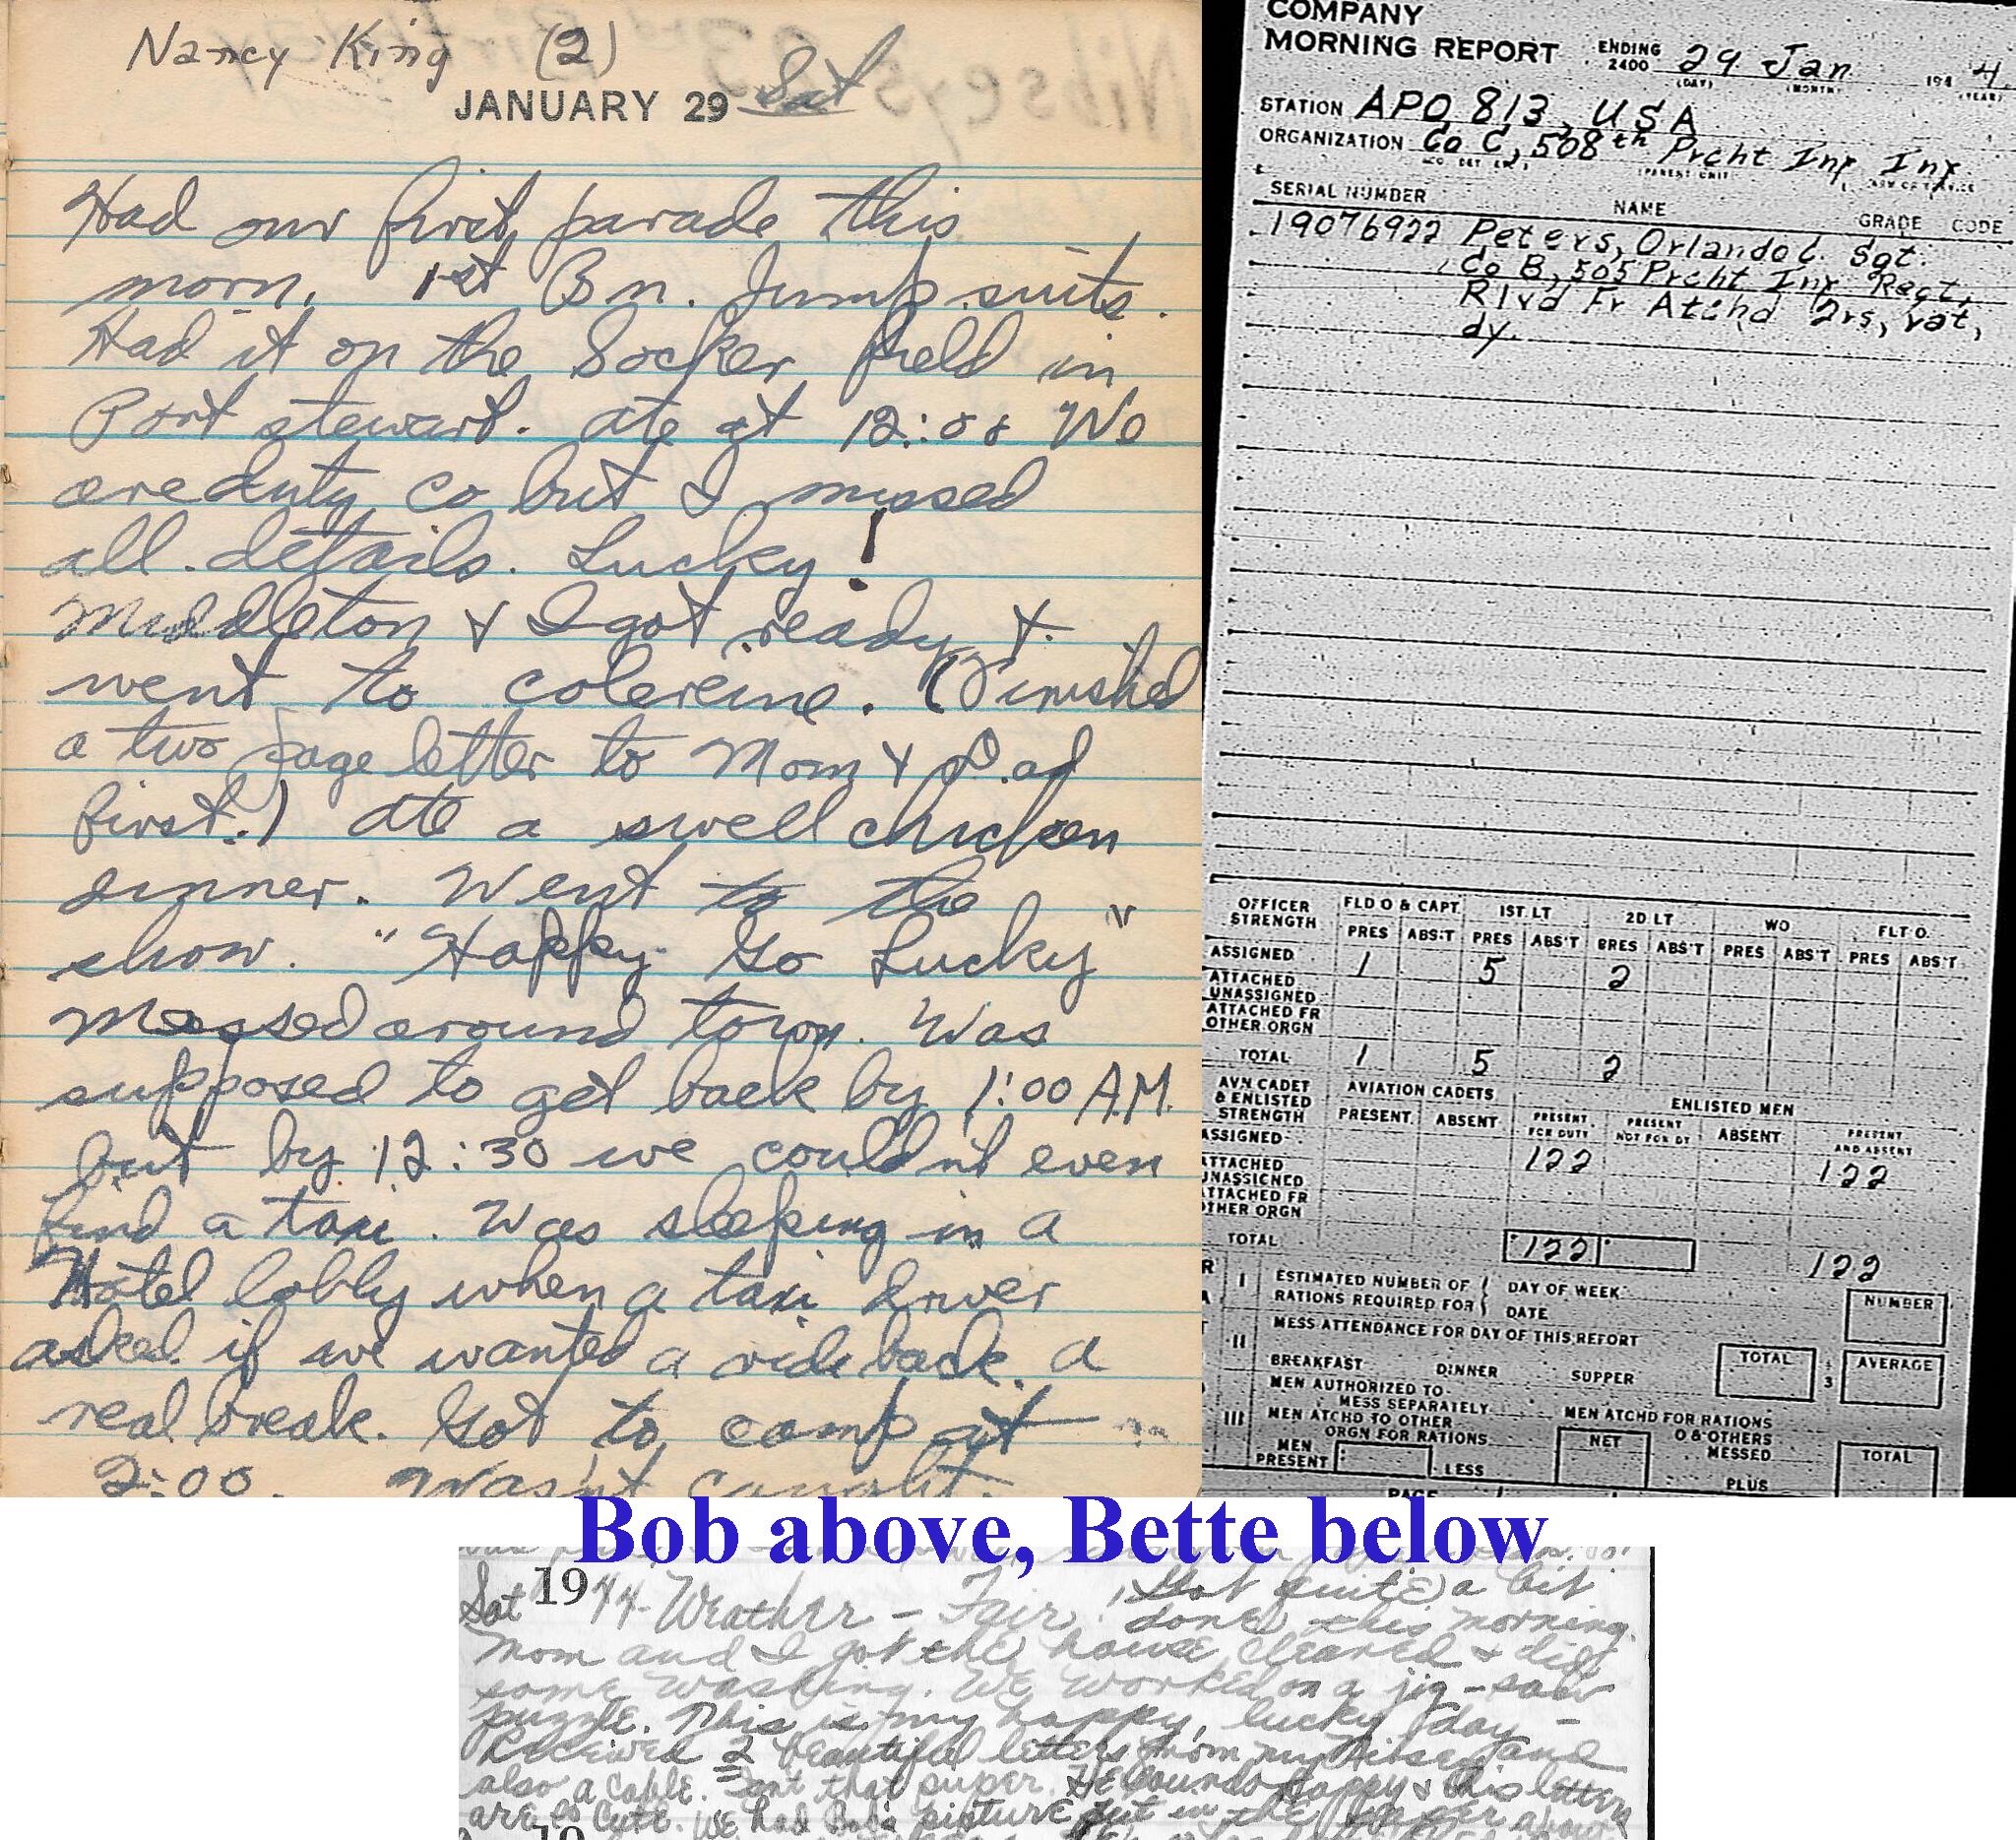 Nancy King (2)
JANUARY 29 Sat
Had our first parade this
morn. 1st Bn. Jump suits.
Had it on the Socker field in
Port stewart. ate at 12:00 We
are duty co but I missed
all details. Lucky!
Middleton & I got ready &
went to colereine. (Finished
a two page letter to Mom & Dad
first.) ate a swell chicken
dinner. Went to the
show. "Happy Go Lucky"
Messed around town. Was
supposed to get back by 1:00 A.M.
but by 12:30 we couldn't even
find a taxi. Was sleeping in a
Hotel lobby when a taxi driver
asked if we wanted a ride back. a
real break. Got to camp at
2:00. Wasn't caught.
COMPANY
MORNING REPORT ENDING 2400 29 Jan 194 4
(DAY) (MONTH) (YEAR)
STATION APO 813, USA
ORGANIZATION Co C, 508th Prcht Inf Inf
(PARENT UNIT)
SERIAL NUMBER NAME GRADE CODE
19076922 Peters, Orlando C. Sgt.
Co B, 505 Prcht Inf Regt,
Rlvd Fr Atchd 2rs, rat,
dy.
OFFICER STRENGTH FLD O & CAPT 1ST LT 2D LT WO FLT O.
PRES ABS'T PRES ABS'T PRES ABS'T PRES ABS'T PRES ABS'T
ASSIGNED 1 5 2
ATTACHED UNASSIGNED
ATTACHED FR OTHER ORGN
TOTAL 1 5 2
AVN CADET & ENLISTED STRENGTH AVIATION CADETS ENLISTED MEN
PRESENT ABSENT PRESENT FOR DUTY PRESENT NOT FOR DY ABSENT PRESENT AND ABSENT
ASSIGNED 122 122
ATTACHED UNASSIGNED
ATTACHED FR OTHER ORGN
TOTAL 122 122
I ESTIMATED NUMBER OF RATIONS REQUIRED FOR DAY OF WEEK DATE NUMBER
II MESS ATTENDANCE FOR DAY OF THIS REPORT
BREAKFAST DINNER SUPPER TOTAL 3 AVERAGE
III MEN AUTHORIZED TO MESS SEPARATELY MEN ATCHD FOR RATIONS
MEN ATCHD TO OTHER ORGN FOR RATIONS O & OTHERS MESSED
MEN PRESENT LESS NET PLUS TOTAL
PAGE
Bob above, Bette below
Sat 1944 Weather - Fair. Got quite a bit
done this morning.
Mom and I got the house cleaned & did
some washing. We worked on a jig-saw
puzzle. This is my happy, lucky day -
Received 2 beautiful letters from my and
also a cable. Isn't that super. He sounds happy & his letters
are so cute. We had Bob's picture put in the paper